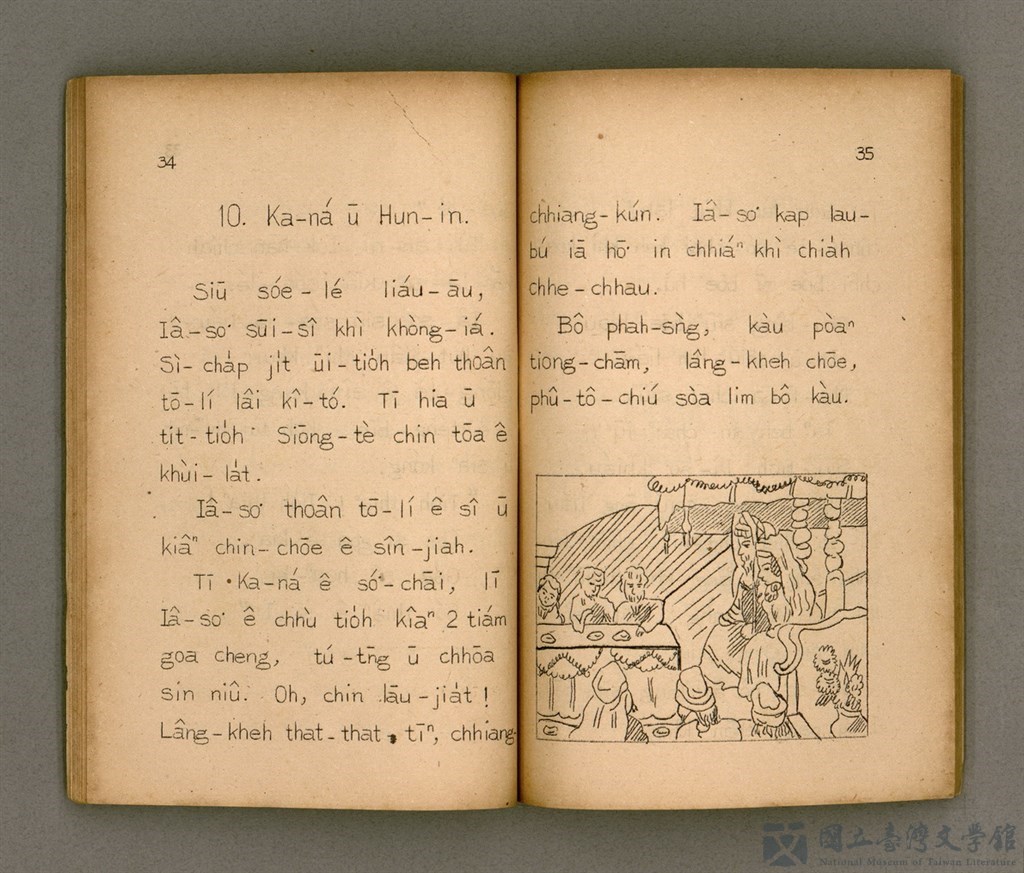 34
10. Ka-ná ū Hun-in.
Siū sóe-lé liáu-āu,
Iâ-so͘ sūi-sî khì khòng-iá.
Sì-cha̍p ji̍t ūi-tio̍h beh thoân
tō-lí lâi kî-tó. Tī hia ū
tit-tio̍h Siōng-tè chin tōa ê
khùi-la̍t.
Iâ-so͘ thoân tō-lí ê sî ū
kiâⁿ chin-chōe ê sîn-jiah.
Tī Ka-ná ê só͘-chāi, lī
Iâ-so͘ ê chhù tio̍h kîaⁿ 2 tiám
goa cheng, tú-tn̄g ū chhōa
sin niû. Oh, chin lāu-jia̍t!
Lâng-kheh that-that tīⁿ, chhiang-
35
chhiang-kún. Iâ-so͘ kap lau-
bú iā hō͘ in chhiáⁿ khì chia̍h
chhe-chhau.
Bô phah-sǹg, kàu pòaⁿ
tiong-chām, lâng-kheh chōe,
phû-tô-chiú sòa lim bô kàu.
國立臺灣文學館
National Museum of Taiwan Literature